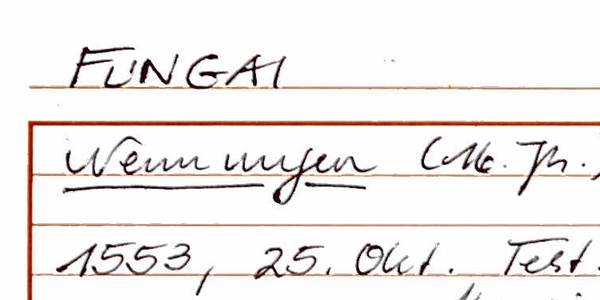 FUNGAI
Wenn ungen (M. Th.)
1553, 25. Okt. Test.